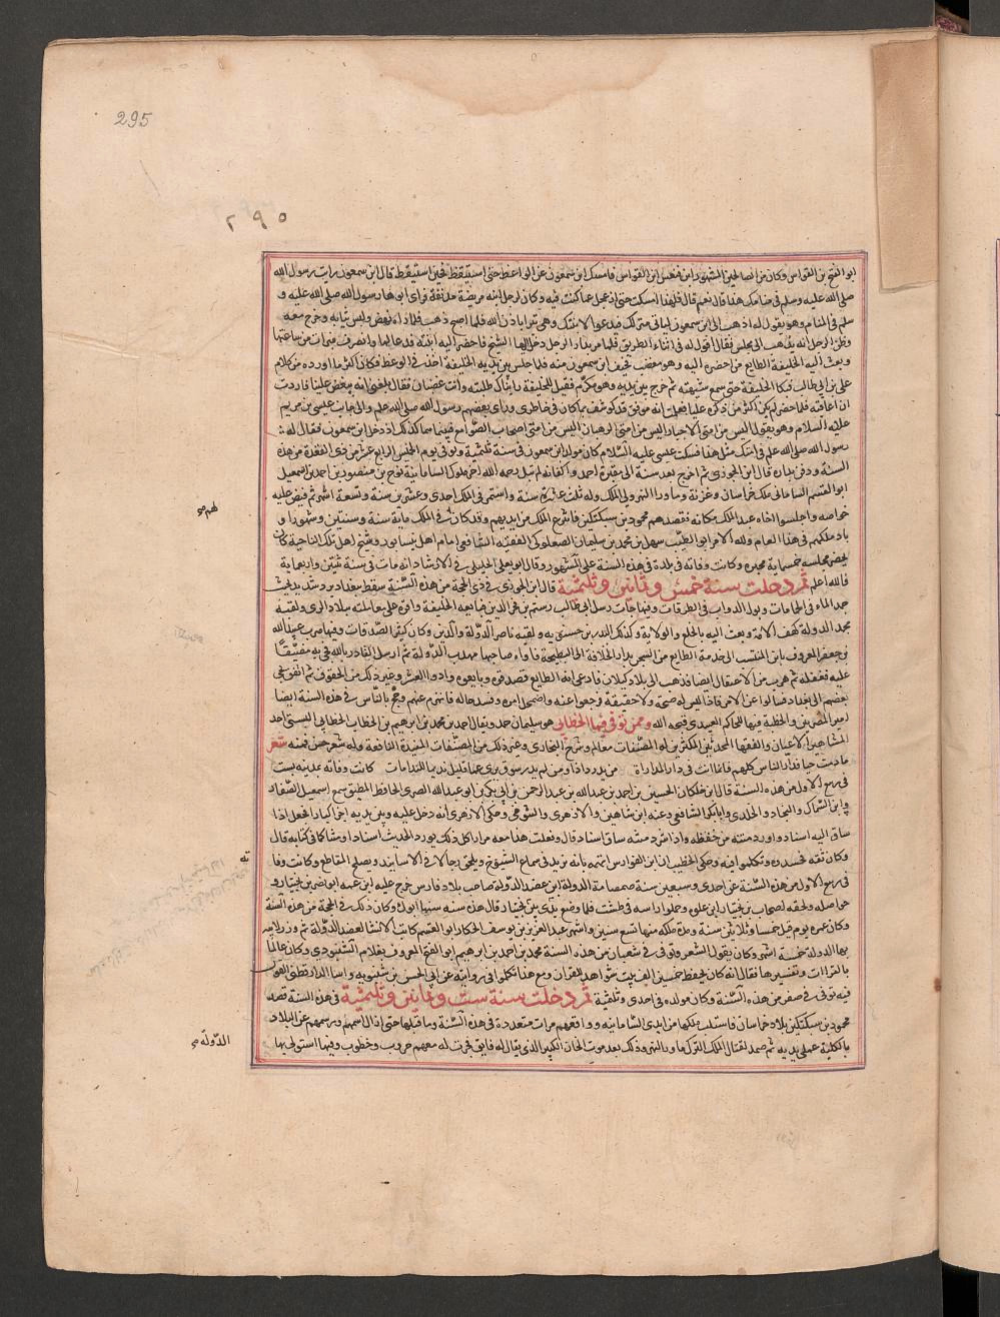 295
٢٩٥
ابو الفتح بن القواس وكان من الصالحين المشهورين فنعس ابن القواس فامسك ابن سمعون عن الوعظ حتى استيقظ فحين استيقظ قال ابن سمعون رايت رسول الله
صلى الله عليه وسلم في منامك هذا قال نعم قال فلهذا امسكت حتى لا ازعجك عما كنت فيه وكان لرجل ابنه مريضة مدنفة فراى ابوها رسول الله صلى الله عليه و
سلم في المنام وهو يقول له اذهب الى ابن سمعون لياتي منزلك فيدعو لابنتك وهي تبرا باذن الله فلما اصبح ذهب فلما راه نهض ولبس ثيابه وخرج معه
وظن الرجل انه يذهب الى مجلس فقال اقول له في اثناء الطريق فلما مر بدار الرجل دخل اليها الشيخ فاحضر اليه ابنته فدعا لها وانصرف فبرات من ساعتها
وبعث اليه الخليفة الطايع من احضره اليه وهو مغضب فخيف ابن سمعون منه فلما جلس بين يديه الخليفة اخذ في الوعظ فكان اكثر ما اورده من كلام
علي بن ابي طالب فبكا الخليفة حتى سمع شهيقه ثم خرج من بين يديه وهو مكرم فقيل للخليفة رايناك طلبته وانت غضبان فقال بلغني انه يبغض عليا فاردت
ان اعاقبه فلما حضر لم يكن اكثر من ذكره عليا فعلمت انه موفق قد كوشف بما كان في خاطري وراى بعضهم رسول الله صلعم والى جانبه عيسى بن مريم
عليه السلام وهو يقول اليس من امتي الاحبار اليس من امتي الرهبان اليس من امتي اصحاب الصوامع فبينما هما كذلك اذ دخل ابن سمعون فقال له
رسول الله صلى الله علم في امتك مثل هذا فسكت عيسى عليه السلام كان مولد ابن سمعون في سنة ثلثمية وتوفي يوم الخميس الرابع عشر من ذي القعدة من هذه
السنة ودفن بداره قال ابن الجوزي ثم اخرج بعد سنة الى مقبرة احمد واكفانه لم تبل رحمه الله اخر ملوك السامانية نوح بن منصور بن احمد بن اسمعيل
ابو القسم الساماني ملك خراسان وغزنة وما ورا النهر ولي الملك وله ثلث عشرة سنة واستمر في الملك احدى وعشرين سنة وتسعة اشهر ثم قبض عليه
خواصه واجلسوا اخاه عبد الملك مكانه فقصدهم محمود بن سبكتكين فانتزع الملك من ايديهم وقد كان في الملك ماية سنة وسنتين وشهورا و
باد ملكهم في هذا العام ولله الامر ابو الطيب سهل بن محمد بن سليمان الصعلوكي الفقيه الشافعي امام اهل نيسابور وشيخ اهل تلك الناحية كان
يحضر مجلسه خمسماية محبرة وكانت وفاته في بلدة في هذه السنة على المشهور وقال ابو يعلى الخليلي في الارشاد انه مات في سنة ثنتين واربعماية
فالله اعلم ثم دخلت سنة خمس وثمانين وثلثمية قال ابن الجوزي في ذي الحجة من هذه السنة سقط ببغداد برد شديد بحيث
جمد الماء في الحمامات وبول الدواب في الطرقات وفيها جات رسل ابي طالب رستم بن فخر الدين فبايعه الخليفة واقره على معاملته ببلاد الري ولقبه
مجد الدولة كهف الامة وبعث اليه بالخلع والولاية وكذلك لبدر بن حسنويه ولقبه ناصر الدولة والدين وكان كثير الصدقات وفيها هرب عبد الله
بن جعفر المعروف بابن المنتسب الى خدمة الطايع من السجن بدار الخلافة الى البطيحة فاواه صاحبها مهذب الدولة ثم ارسل القادر بالله في به مضيقا
عليه فعقله ثم هرب من الاعتقال ايضا فذهب الى بلاد كيلان فادعى انه الطايع فصدقوه وبايعوه وادوا العشر وغير ذلك من الحقوق ثم اتفق مجي
بعضهم الى بغداد فسالوا عن الامر فاذا ليس له صحة ولا حقيقة فرجعوا عنه واضمحل امره وفسد حاله فانهزم عنهم وحج بالناس في هذه السنة ايضا
امير المصريين والخطبة فيها للحاكم العبيدي قبحه الله وممن توفي فيها الخطابي هو سليمان حمد ويقال احمد بن محمد بن ابراهيم بن الخطاب الخطابي البستي احد
المشاهير الاعيان والفقها المجتهدين المكثرين له المصنفات معالم وشرح البخاري وغير ذلك من المصنفات المفيدة النافعة وله شعر حسن فمنه شعر
ما دمت حيا فدار الناس كلهم فانما انت في دار المداراة من يدر دارا ومن لم يدر سوف يرى عما قليل نديما للندامات كانت وفاته بمدينه بست
في ربيع الاول من هذه السنة قال ابن خلكان الحسين بن احمد بن عبد الله بن عبد الرحمن بن ابي بكر ابو عبد الله الصيرفي الحافظ المطبق سمع اسمعيل الصفار
وابن السماك والنجاد والخلدي وابا بكر الشافعي وعنه ابن شاهين والازهري والتنوخي وحكى الازهري انه دخل عليه وبين يديه اجزا كبار فجعل اذا
ساق اليه اسنادا اورد متنه من حفظه واذا سرد متنه ساق اسناده قال وفعلت هذا معه مرارا كل ذلك يورد الحديث اسنادا ومتنا كما في كتابه قال
وكان ثقة فحسدوه وتكلموا فيه وحكى الخطيب ان ابن ابي الفوارس اتهمه بانه يزيد في سماع الشيوخ ويلحق رجالا في الاسانيد ويصل المقاطع وكانت وفا
في ربيع الاول من هذه السنة عن احدى وسبعين سنة صمصامة الدولة ابن عضد الدولة صاحب بلاد فارس خرج عليه ابن عمه ابو نصر بن بختيار و
حواصله ولحقه اصحاب بن بختيار ابن علي وحملوا راسه في طشت فلما وضع بين يدي ابن بختيار قال هذه سنة سنها ابوك وكان ذلك في الحجة من هذه السنة
وكان عمره يوم قتل خمسا وثلاثين سنة ومدة ملكه منها تسع سنين واشهر عبد العزيز بن يوسف الحكار ابو القسم كاتب الانشا لعضد الدولة ثم وزر لابنه
بها الدولة خمسة اشهر وكان يقول الشعر وتوفي في شعبان من هذه السنة محمد بن احمد بن ابراهيم ابو الفتح المعروف بغلام الشنبوذي وكان عالما
بالقراات وتفسيرها فقال انه كان يحفظ خمسين الف بيت شواهد للقران ومع هذا تكلموا في روايته عن ابي الحسن بن شنبوذ واسا الدارقطني القول
فيه توفي في صفر من هذه السنة وكان مولده في احدى وثلثمية ثم دخلت سنة ست وثمانين وثلثمية في هذه السنة قصد
محمود بن سبكتكين بلاد خراسان فاستلب ملكها من ايدي السامانيه وواقعهم مرات متعددة في هذه السنة وما قبلها حتى ازال اسمهم ورسمهم عن البلاد
بالكلية على يديه ثم صمد لقتال الملك الترك ما ورا النهر وذلك بعد موت الخان الكبير الذي يقال له فايق فجرت له معهم حروب وخطوب وفيها استولى بها
ته
الدوله